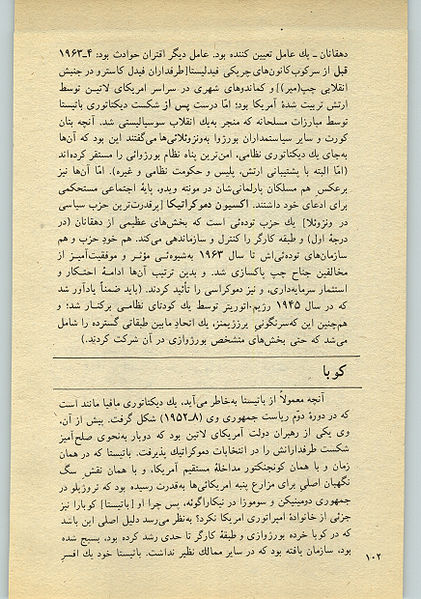 دهقانان ــ یك عامل تعیین کننده بود. عامل دیگر اقتران حوادث بود: ۴ــ۱۹۶۳
قبل از سرکوب کانون‌های چریکی فیدلیستا[طرفداران فیدل کاسترو در جنبش
انقلابی چپ(میر)] و کماندوهای شهری در سراسر امریکای لاتین توسط
ارتش تربیت شدهٔ آمریکا بود؛ امّا درست پس از شکست دیکتاتوری باتیستا
توسط مبارزات مسلحانه که منجر به‌یك انقلاب سوسیالیستی شد. آنچه بتان
کورت و سایر سیاستمداران بورژوا به‌ونزوئلائی‌ها می‌گفتند این بود که آن‌ها
به‌جای یك دیکتاتوری نظامی، امن‌ترین پناه نظام بورژوائی را مستقر کرده‌اند
(امّا البته با پشتیبانی ارتش، پلیس و حکومت نظامی و غیره). امّا آن‌ها نیز
برعکس هم مسلکان پارلمانی‌شان در مونته ویدو، پایهٔ اجتماعی مستحکمی
برای ادعای خود داشتند. اکسیون دموکراتیکا [پرقدرت‌ترین حزب سیاسی
در ونزوئلا] یك حزب توده‌ئی است که بخش‌های عظیمی از دهقانان (در
درجهٔ اول) و طبقه کارگر را کنترل و سازماندهی می‌کند. هم خودِ حزب و هم
سازمان‌های توده‌ئی‌اش تا سال ۱۹۶۳ به‌شیوه‌ئی مؤثر و موفقیت‌آمیز از
مخالفین جناح چپ پاکسازی شد. و بدین ترتیب آن‌ها ادامهٔ احتکار و
استثمار سرمایه‌داری، و نیز دموکراسی را تأئید کردند. (باید ضمناً یادآور شد
که در سال ۱۹۴۵ رژیم اتوریتر توسط یك کودتای نظامی برکنار شد؛ و
هم‌چنین این که‌سرنگونیِ پرزیمنز، یك اتحادِ مابین طبقاتی گسترده را شامل
می‌شد که حتی بخش‌های متشخص بورژوازی در آن شرکت کردند.)
کوبا
آنچه معمولاً از باتیستا به‌خاطر می‌آید، یك دیکتاتوری مافیا مانند است
که در دورهٔ دوّم ریاست جمهوری وی (۸ــ۱۹۵۲) شکل گرفت. پیش از آن،
وی یکی از رهبران دولت آمریکای لاتین بود که دوبار به‌نحوی صلح‌آمیز
شکست طرفدارانش را در انتخابات دموکراتیك پذیرفت. باتیستا که در همان
زمان و با همان کونجنکتور مداخلهٔ مستقیم آمریکا، و با همان نقش سگ
نگهبان اصلی برای مزارع پنبه امریکائی‌ها به‌قدرت رسیده بود که تروژیلو در
جمهوری دومینیکن و سوموزا در نیکاراگوئه، پس چرا او [باتیستا] کوبارا نیز
جزئی از خانوادهٔ امپراتوری امریکا نکرد؟ به‌نظر می‌رسد دلیل اصلی این باشد
که در کوبا خرده بورژوازی و طبقهٔ کارگر تا حدی رشد کرده بود، بسیج شده
بود، سازمان یافته بود که در سایر ممالك نظیر نداشت. باتیستا خود یك افسر
۱۰۲